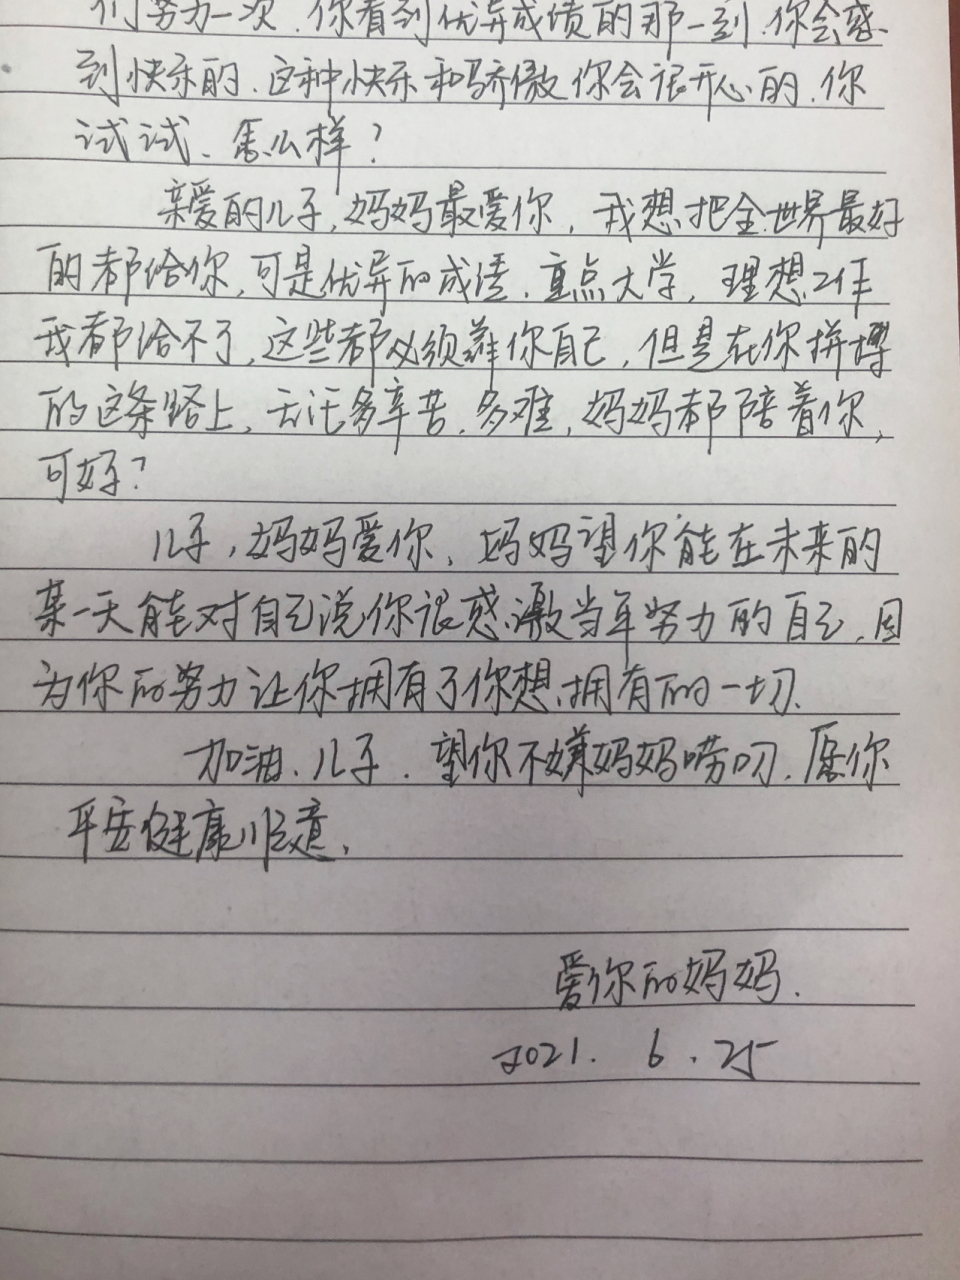 们努力一次.你看到优异成绩的那一刻.你会感
到快乐的.这种快乐和骄傲你会很开心的.你
试试、怎么样?
亲爱的儿子,妈妈最爱你,我想把全世界最好
的都给你,可是优异的成绩.重点大学,理想工作
我都给不了,这些都必须靠你自己,但是在你拼搏
的这条路上,无论多辛苦.多难,妈妈都陪着你,
可好?
儿子,妈妈爱你、妈妈望你能在未来的
某一天能对自己说你很感激当年努力的自己.因
为你的努力让你拥有了你想拥有的一切.
加油、儿子.望你不嫌妈妈唠叨.愿你
平安健康顺意.
爱你的妈妈.
2021. 6.25